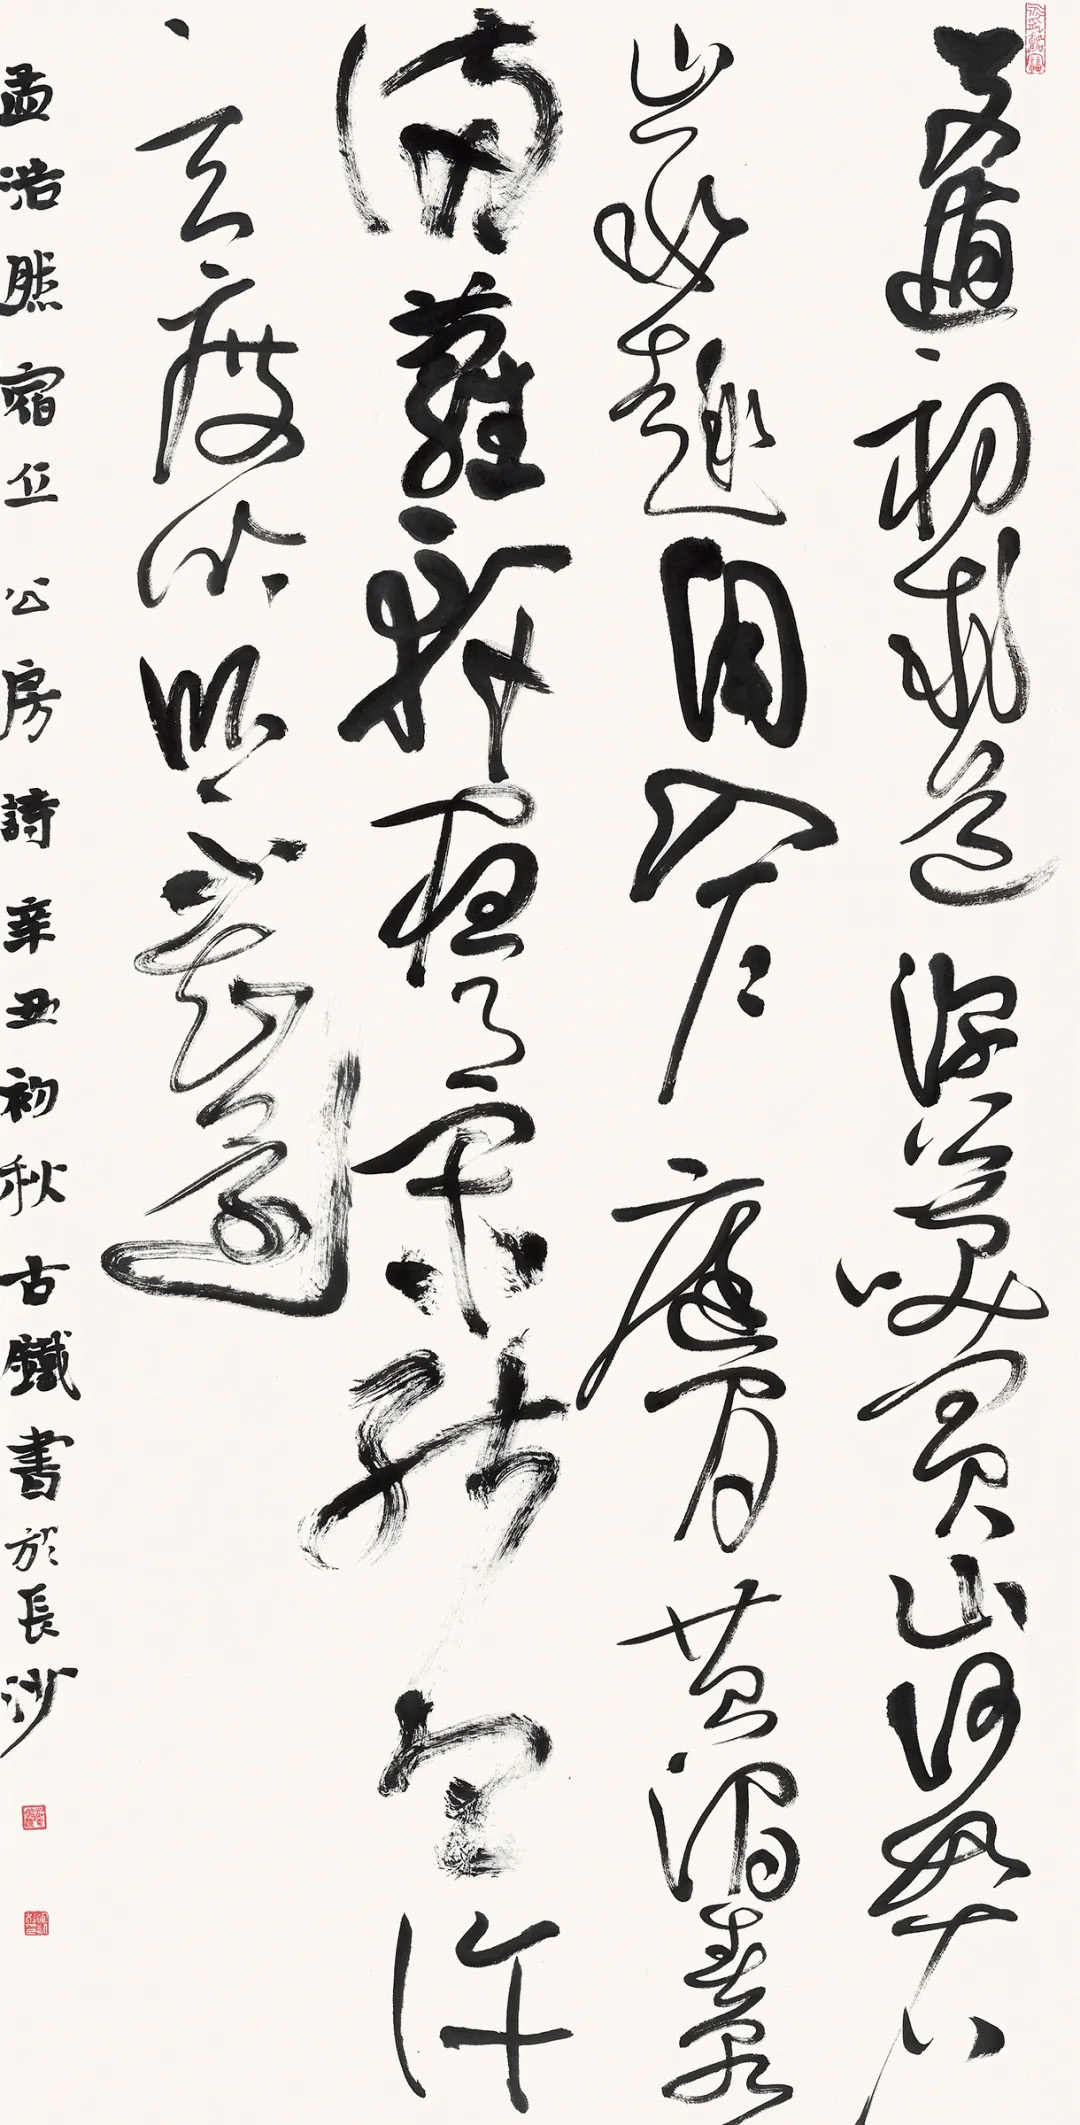 支遁初求道深公笑買山何如石
巖趣自入戶庭間苔澗春泉
滿蘿軒夜月閑能令許
玄度吟臥不知還
孟浩然宿立公房詩辛丑初秋古鐵書於長沙